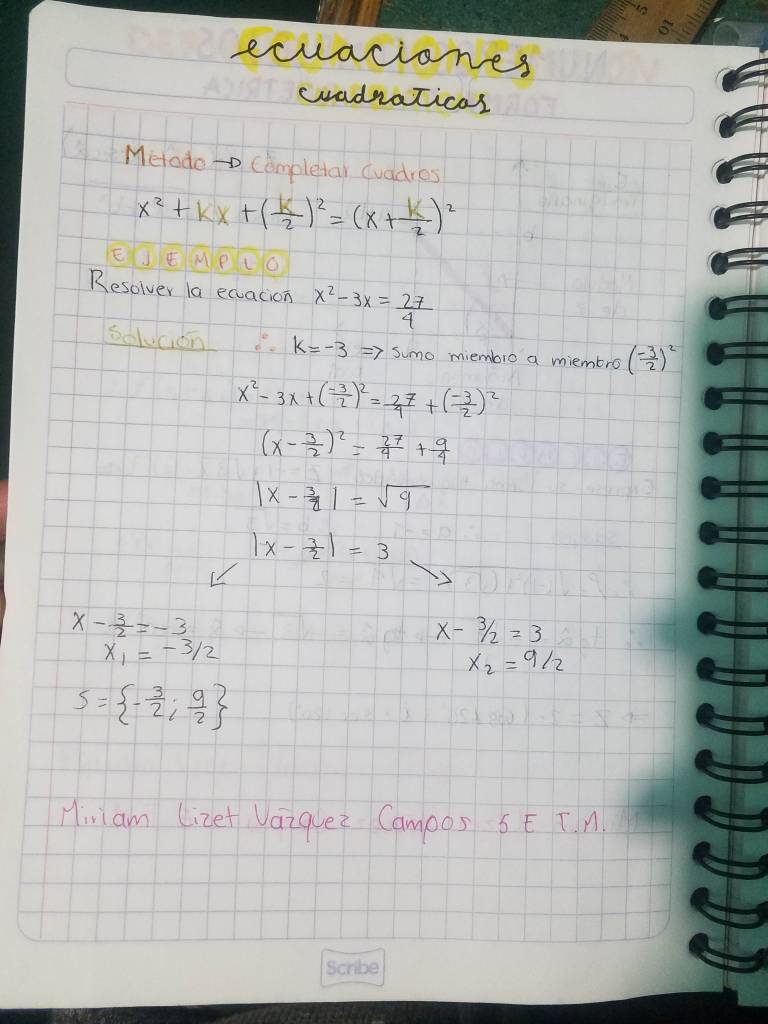 ecuaciones
cuadraticas
Metodo → Completar cuadros
x² + kx + (k/2)² = (x + k/2)²
EJEMPLO
Resolver la ecuación x² - 3x = 27/4
Solución ∴ K = -3 => sumo miembro a miembro (-3/2)²
x² - 3x + (-3/2)² = 27/4 + (-3/2)²
(x - 3/2)² = 27/4 + 9/4
|x - 3/2| = √9
|x - 3/2| = 3
x - 3/2 = -3 x - 3/2 = 3
x₁ = -3/2 x₂ = 9/2
S = {-3/2 ; 9/2}
Miriam Lizet Vázquez Campos 5 E T.M.
Scribe